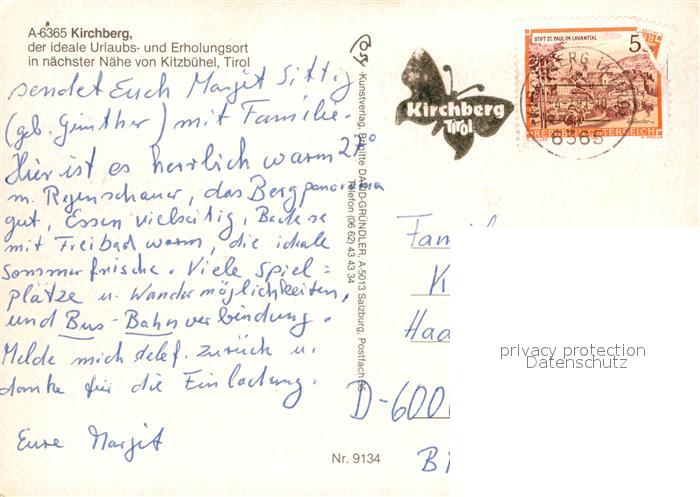 A-6365 Kirchberg,
der ideale Urlaubs- und Erholungsort
in nächster Nähe von Kitzbühel, Tirol
sendet Euch Margit Sittig
(geb. Günther) mit Familie.
Hier ist es herrlich warm
m. Regenschauer, das Bergpanorama
gut, Essen vielseitig, Badesee
mit Freibad warm, die ideale
Sommerfrische. Viele Spiel=
plätze u. Wandermöglichkeiten,
und Bus-Bahnverbindung.
Melde mich telef. zurück u.
danke für die Einladung.
Eure Margit
Nr. 9134
Kunstverlag, Brigitte DAVID-GRÜNDLER, A-5013 Salzburg, Postfach
Telefon (06 62) 43 43 34
Kirchberg
Tirol
STIFT ST. PAUL IM LAVANTTAL
5
REPUBLIK ÖSTERREICH
6365
Famil
K
Haa
D-600
privacy protection
Datenschutz